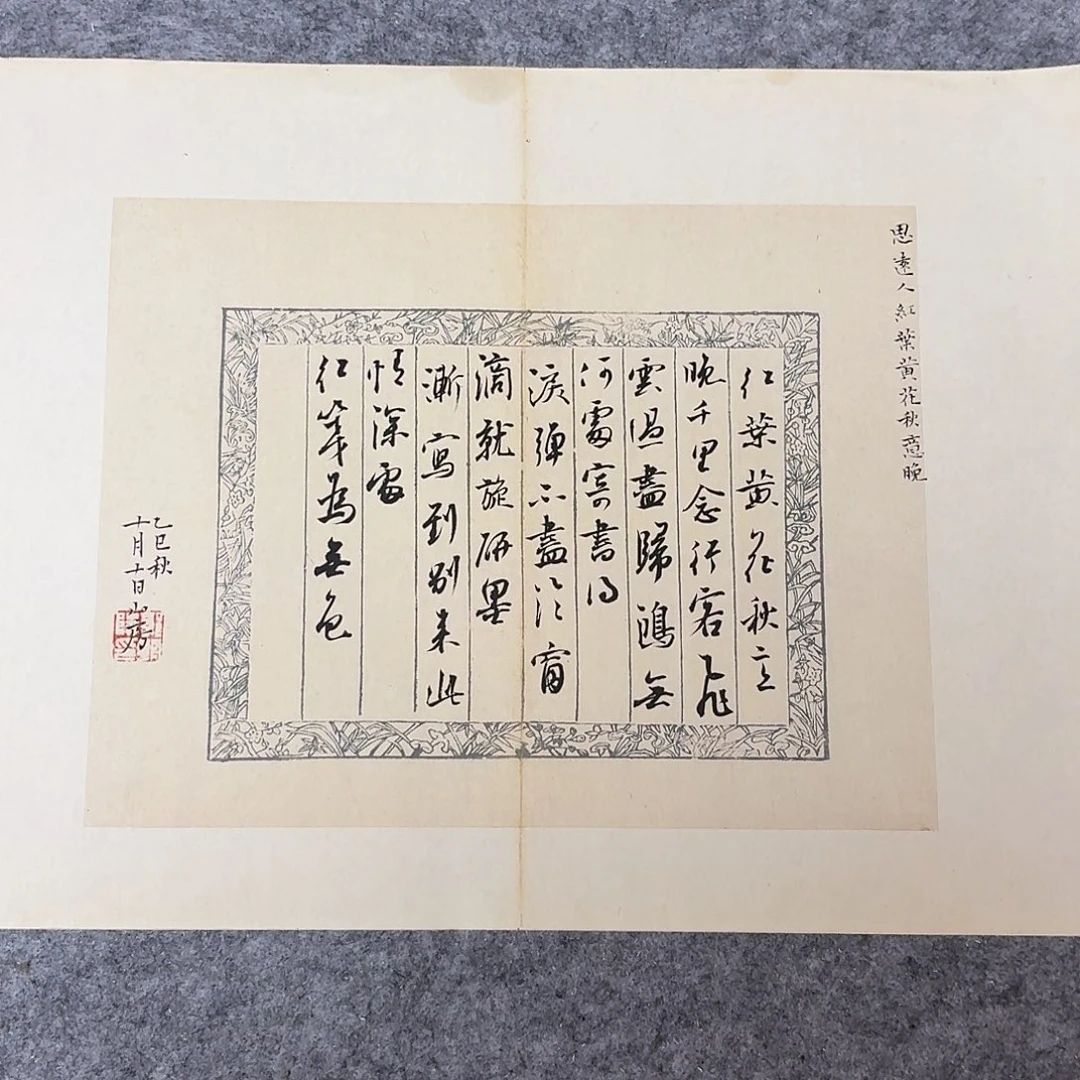 思遠人紅葉黃花秋意晚
紅葉黃花秋意
晚千里念行客飛
雲過盡歸鴻無
何處寄書得
淚彈不盡臨窗
滴就旋研墨
漸寫到別來此
情深處
紅箋為無色
乙巳秋
十月十日